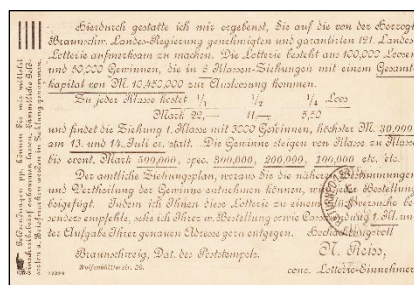 Hierdurch gestatte ich mir ergebenst, Sie auf die von der Herzogl.
Braunschw. Landes-Regierung genehmigten und garantirten 121. Landes-
Lotterie aufmerksam zu machen. Die Lotterie besteht aus 100,000 Loosen
und 50,000 Gewinnen, die in 6 Klassen-Ziehungen mit einem Gesamt-
kapital von M. 10,450,000 zur Ausloosung kommen.
Zu jeder Klasse kostet 1/1 1/2 1/4 Loos
Mark 22,— 11,— 5,50
und findet die Ziehung 1. Klasse mit 3000 Gewinnen, höchster M. 30,000
am 13. und 14. Juli cr. statt. Die Gewinne steigen von Klasse zu Klasse
bis event. Mark 500,000, spec. 300,000, 200,000, 100,000 etc. etc.
Der amtliche Ziehungsplan, woraus Sie die näheren Bestimmungen
und Vertheilung der Gewinne entnehmen können, wird jeder Bestellung
beigefügt. Indem ich Ihnen diese Lotterie zu einem Glücksversuche be-
sonders empfehle, sehe ich Ihrer w. Bestellung sowie Cassasendung 1. Kl. un-
ter Aufgabe Ihrer genauen Adresse gern entgegen. Hochachtungsvoll
Braunschweig, Dat. des Poststempels. N. Reiss,
Wolfenbüttlerstr. 26. conc. Lotterie-Einnehmer.